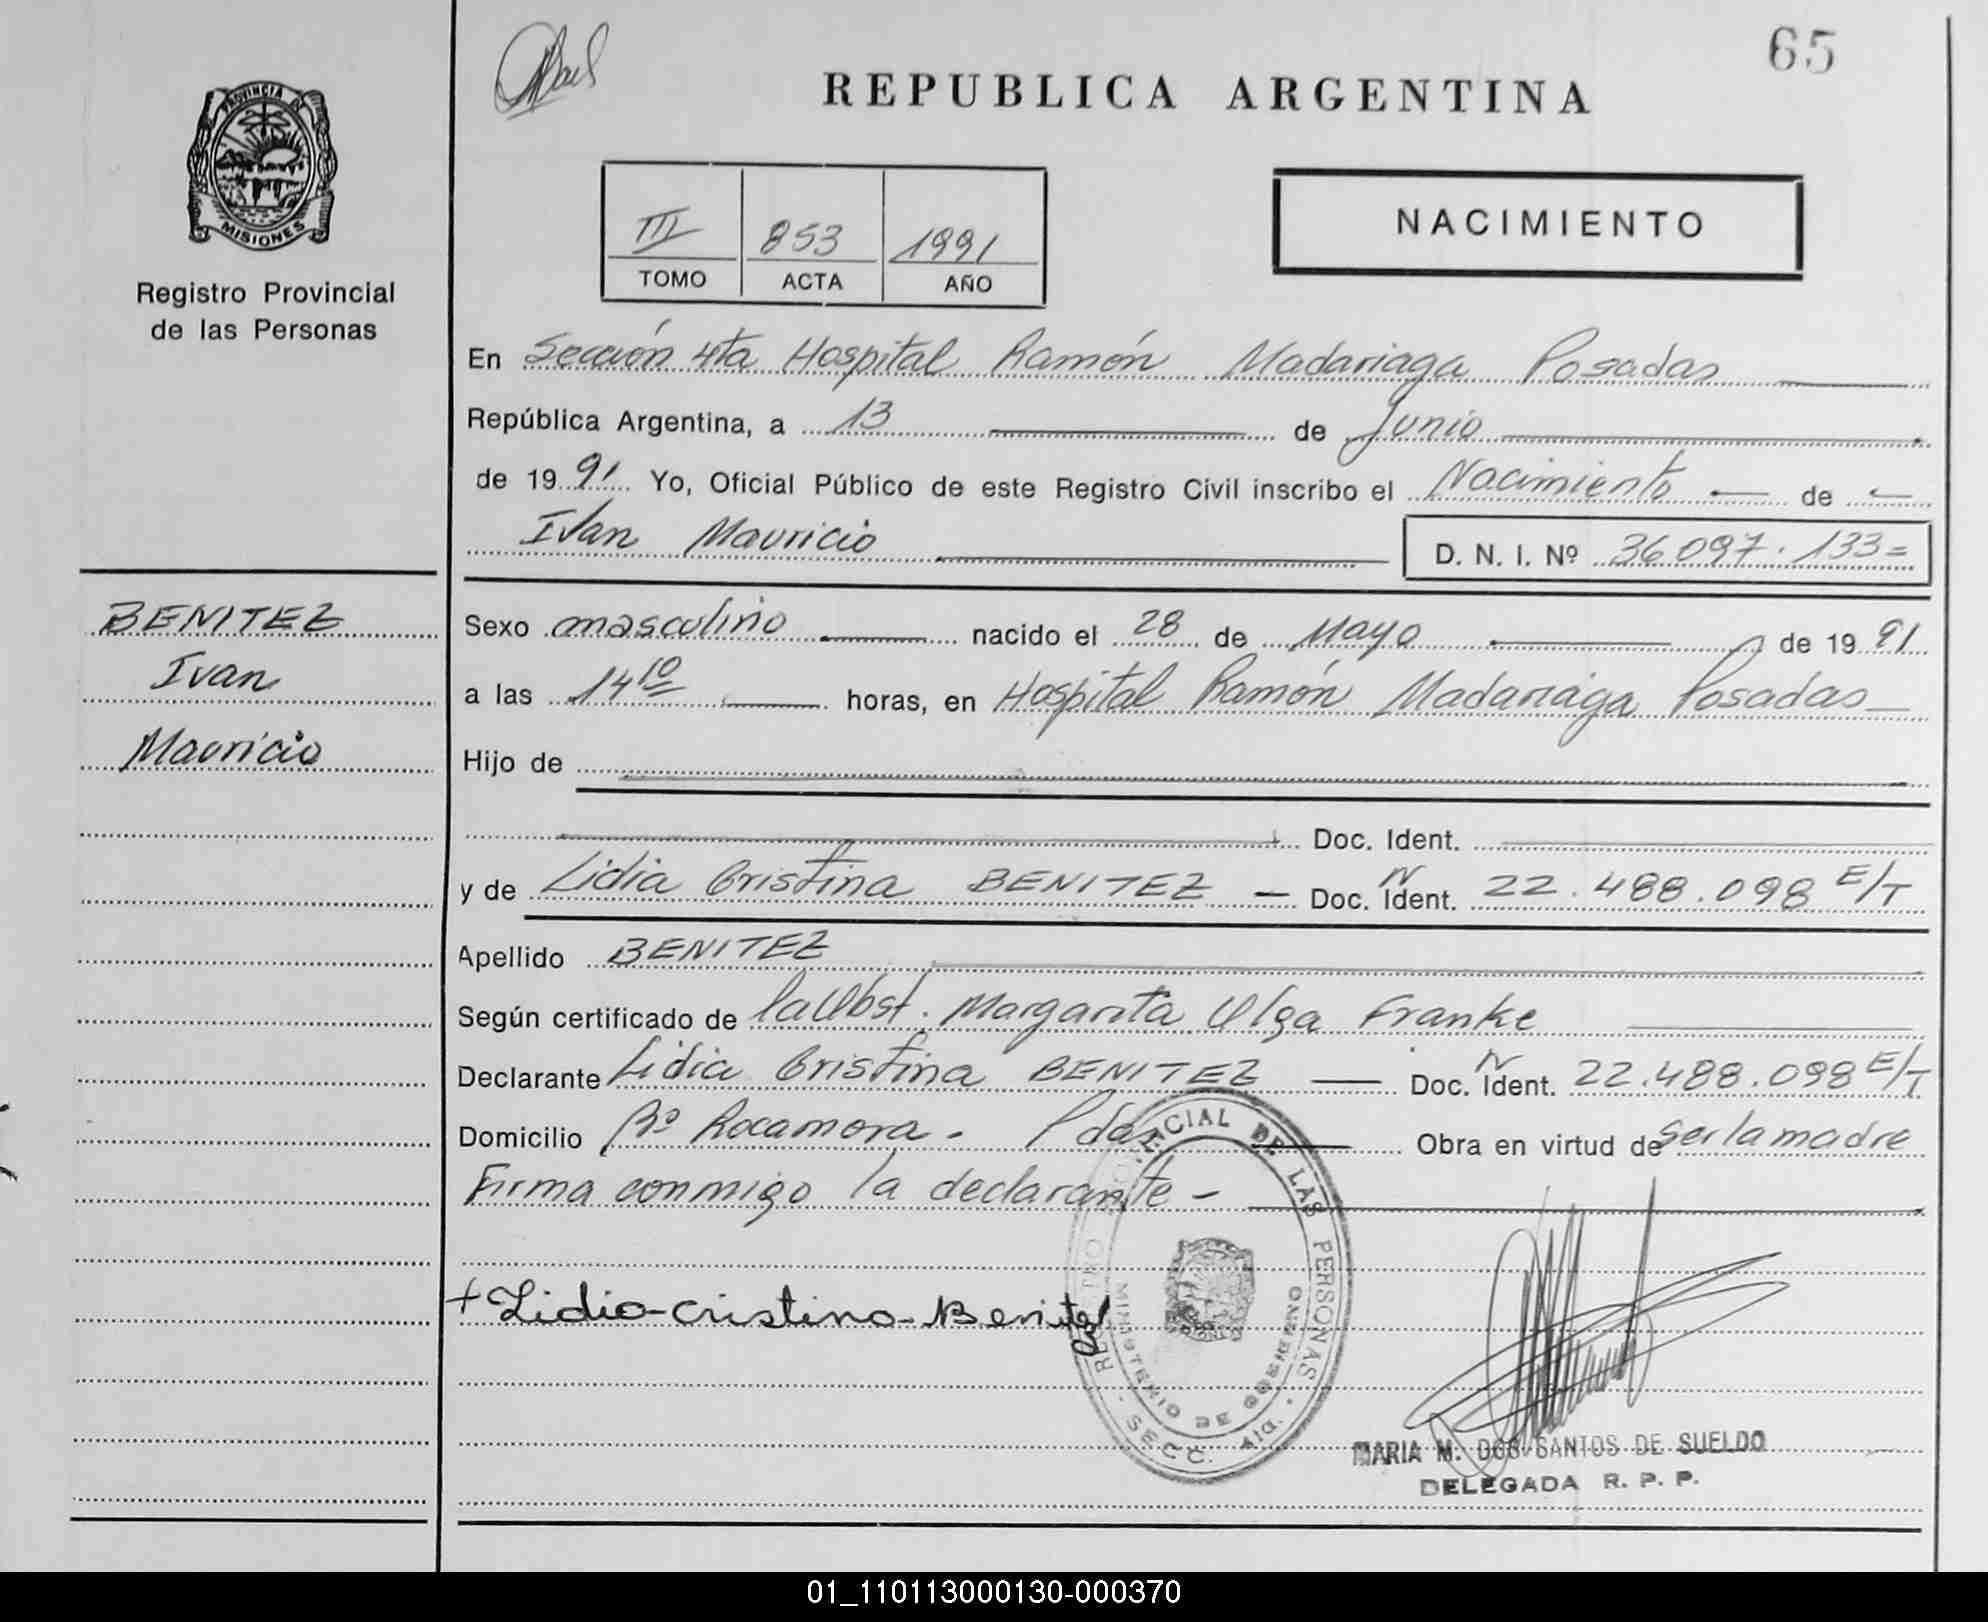 65
REPUBLICA ARGENTINA
PROVINCIA DE
MISIONES
Registro Provincial
de las Personas
III 853 1991
TOMO ACTA AÑO
NACIMIENTO
En Sección 4ta Hospital Ramón Madariaga Posadas
República Argentina, a 13 de Junio
de 1991 Yo, Oficial Público de este Registro Civil inscribo el Nacimiento de
Ivan Mauricio D. N. I. Nº 36.097.133=
BENITEZ
Ivan
Mauricio
Sexo masculino nacido el 28 de Mayo de 1991
a las 14 10 horas, en Hospital Ramón Madariaga Posadas
Hijo de
Doc. Ident.
y de Lidia Cristina BENITEZ — Doc. Ident. 22.488.098 E/T
Apellido BENITEZ
Según certificado de la Obst. Margarita Olga Franke
Declarante Lidia Cristina BENITEZ — Doc. Ident. 22.488.098 E/T
Domicilio Bº Rocamora - Pdas Obra en virtud de ser la madre
Firma conmigo la declarante -
+ Lidia-Cristina-Benitez
REGISTRO PROVINCIAL DE LAS PERSONAS - SECC. 4ta. -
MINISTERIO DE GOBIERNO
MARIA M. DOS SANTOS DE SUELDO
DELEGADA R. P. P.
01_110113000130-000370